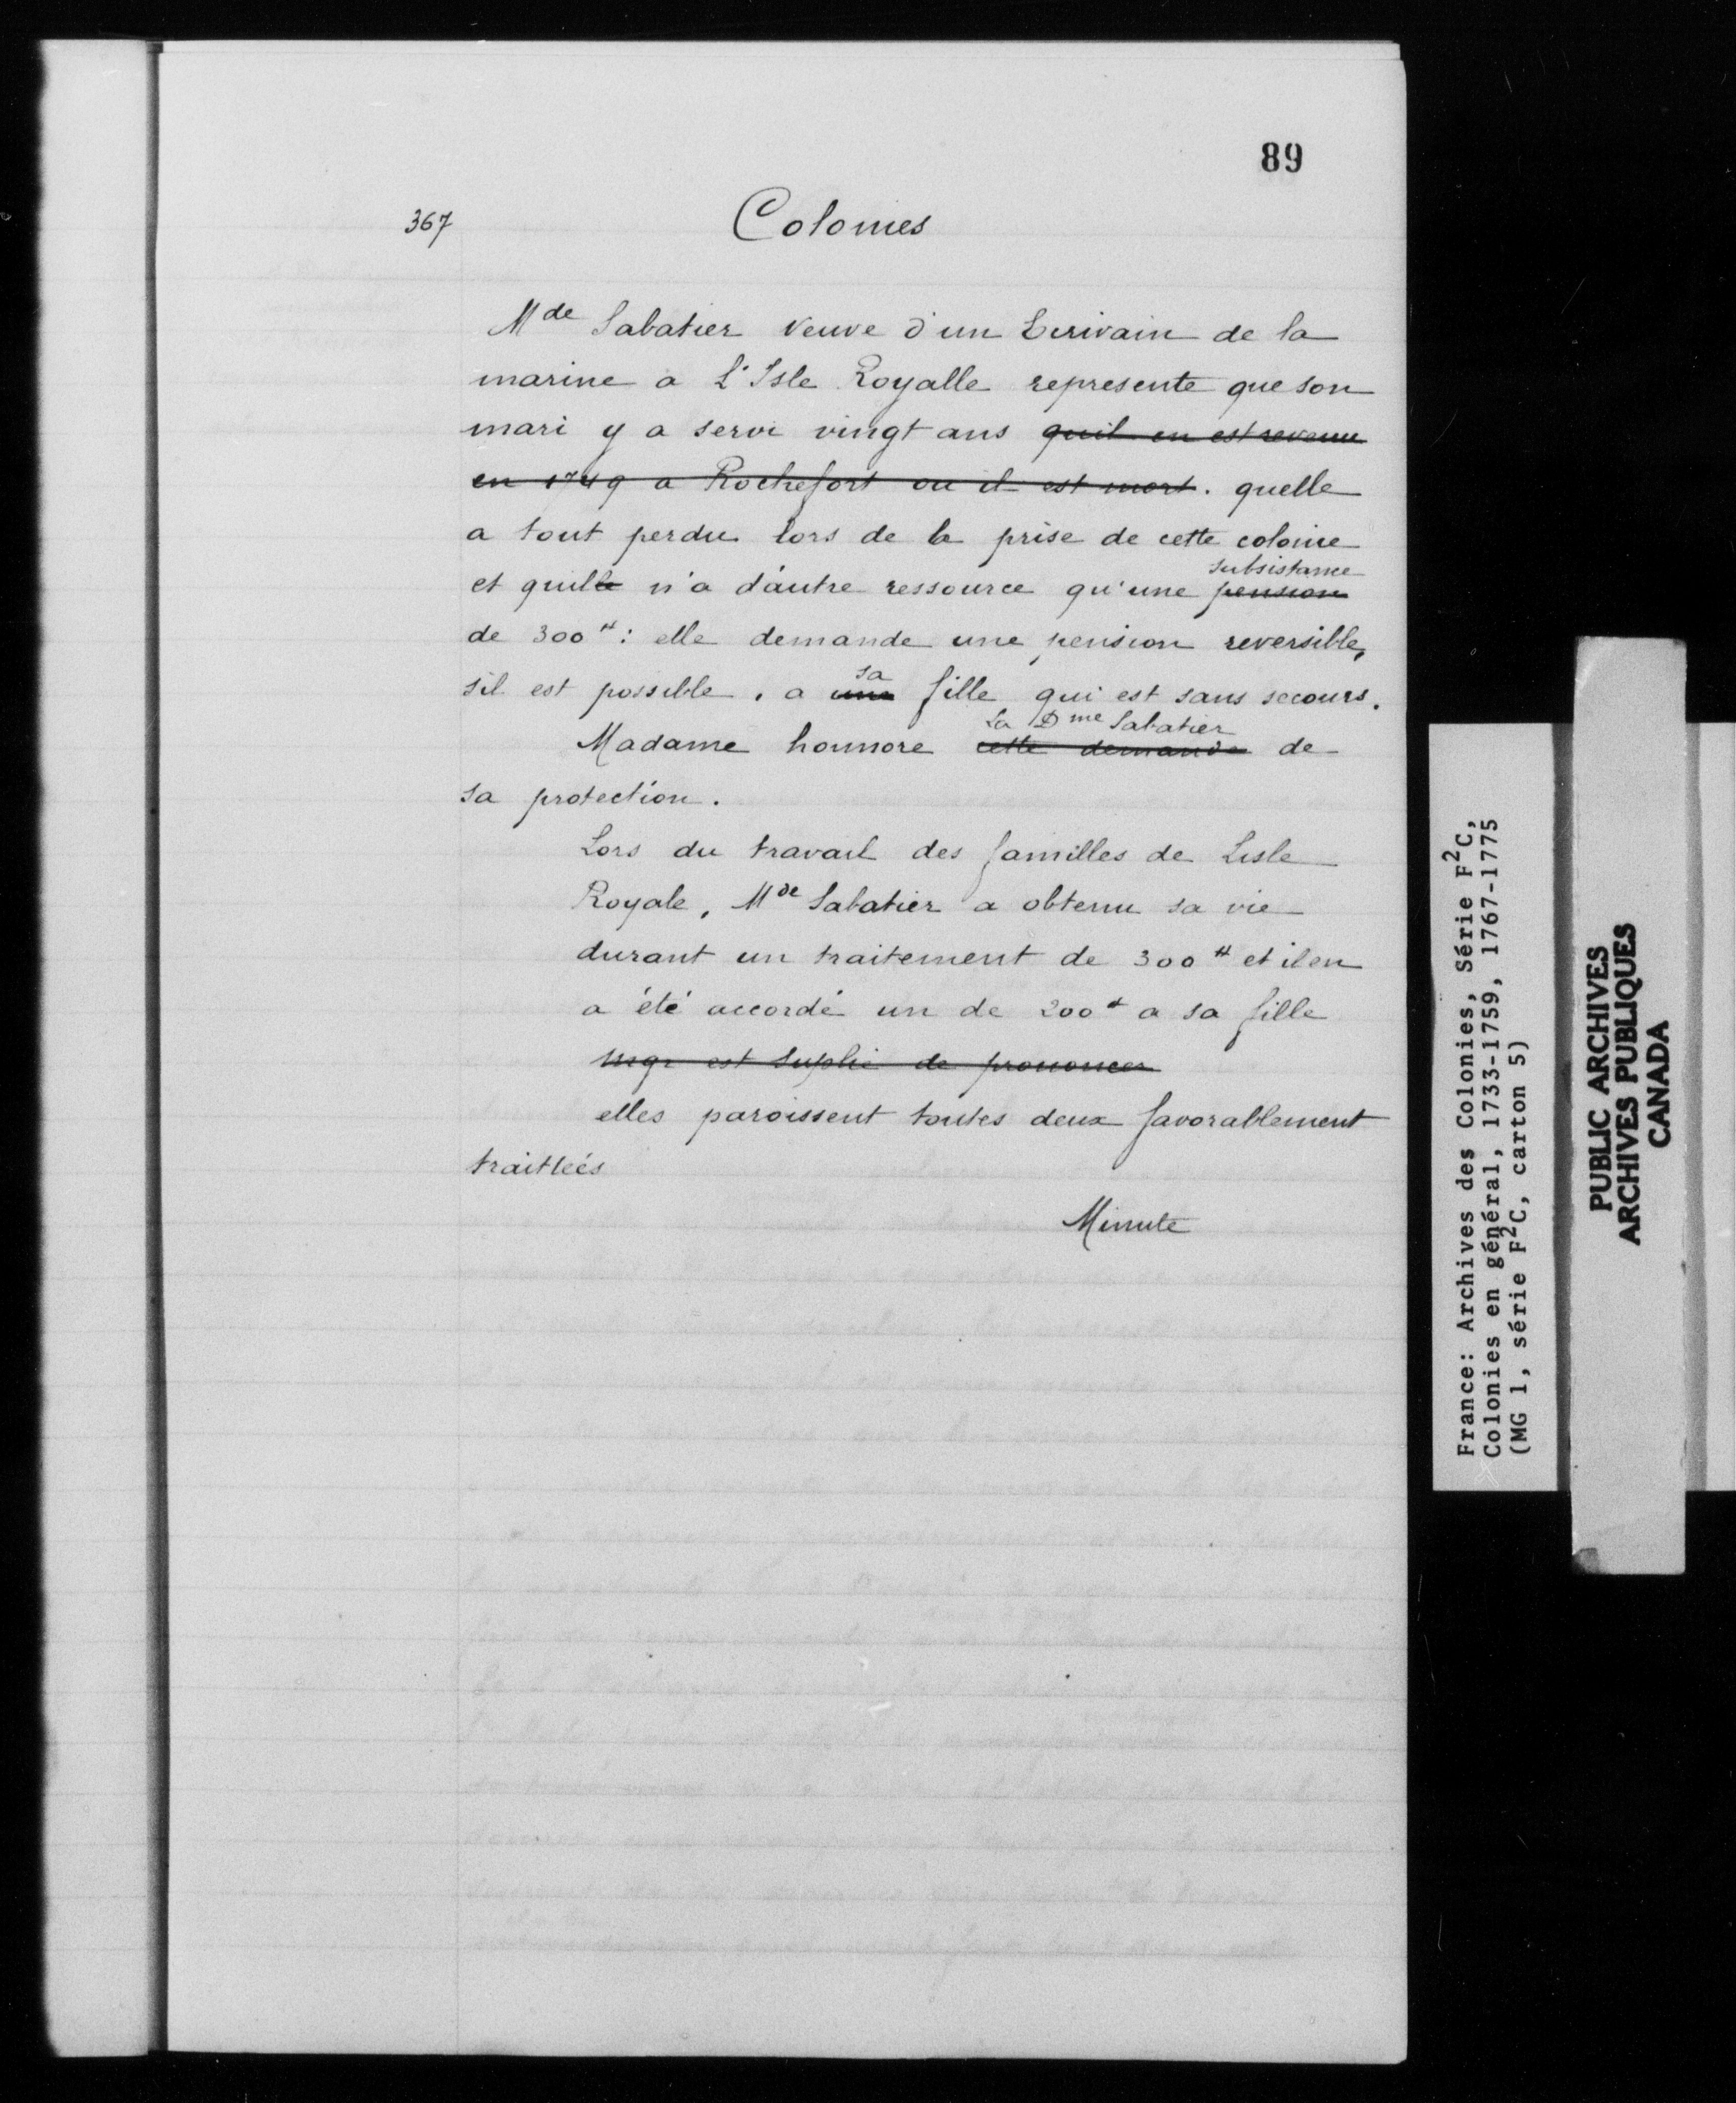 89
367
Colonies
Mde Sabatier Veuve d'un Ecrivain de la
marine a L'Isle Royalle represente que son
mari y a servi vingt ans quil en est revenu
en 1749 a Rochefort ou il est mort. quelle
a tout perdu lors de la prise de cette colonie
subsistance
et quille n'a d'autre ressource qu'une pension
de 300#: elle demande une pension reversible,
sa
sil est possible, a une fille qui est sans secours.
La Dme Sabatier
Madame honnore cette demande de
sa protection.
Lors du travail des familles de Lisle
Royale, Mde Sabatier a obtenu sa vie
durant un traitement de 300# et il en
a été accordé un de 200# a sa fille
Mgr est suplié de prononcer
elles paroissent toutes deux favorablement
traittées
Minute
France: Archives des Colonies, Série F2C,
Colonies en général, 1733-1759, 1767-1775
(MG 1, série F2C, carton 5)
PUBLIC ARCHIVES
ARCHIVES PUBLIQUES
CANADA